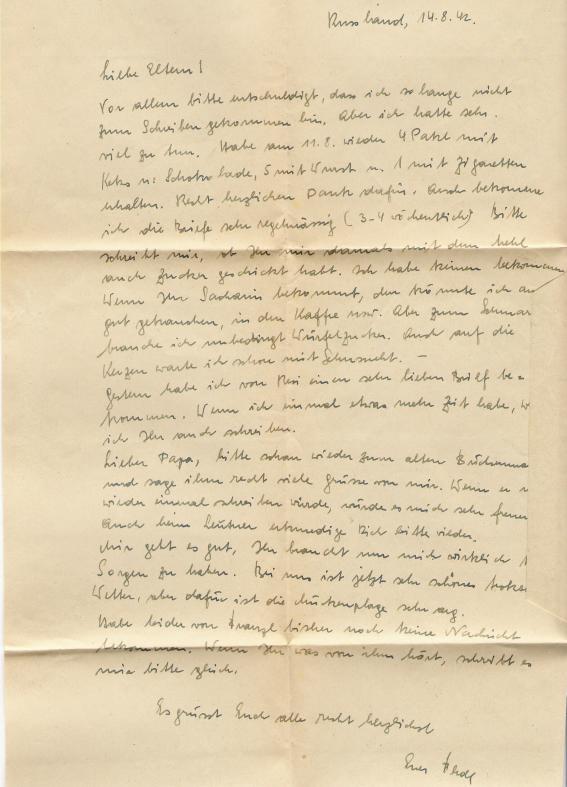 Russland, 14.8.42.
Liebe Eltern!
Vor allem bitte entschuldigt, dass ich so lange nicht
zum Schreiben gekommen bin. Aber ich hatte sehr
viel zu tun. Habe am 11.8. wieder 4 Pakl mit
Keks u. Schokolade, 5 mit Wurst u. 1 mit Zigaretten
erhalten. Recht herzlichen Dank dafür. Auch bekomme
ich die Briefe sehr regelmässig (3-4 wöchentlich) Bitte
schreibt mir, ob Ihr mir damals mit dem Mehl
auch Zucker geschickt habt. Ich habe keinen bekommen
Wenn Ihr Sacharin bekommt, den könnte ich au
gut gebrauchen, in den Kaffee usw. Aber zum
brauche ich unbedingt Würfelzucker. Auch auf die
Kerzen warte ich schon mit Sehnsucht. –
Gestern habe ich von Resi einen sehr lieben Brief be-
kommen. Wenn ich einmal etwas mehr Zeit habe, w
ich Ihr auch schreiben.
Lieber Papa, bitte schau wieder zum alten
und sage ihm recht viele Grüsse von mir. Wenn er
wieder einmal schreiben würde, würde es mich sehr freuen
Auch beim erkundige Dich bitte wieder.
Mir geht es gut, Ihr braucht um mich wirklich
Sorgen zu haben. Bei uns ist jetzt sehr schönes
Wetter, aber dafür ist die Mückenplage sehr arg.
Habe leider von Franzl bisher noch keine Nachricht
bekommen. Wenn Ihr was von ihm hört, schreibt es
mir bitte gleich.
Es grüsst Euch alle recht herzlichst
Euer